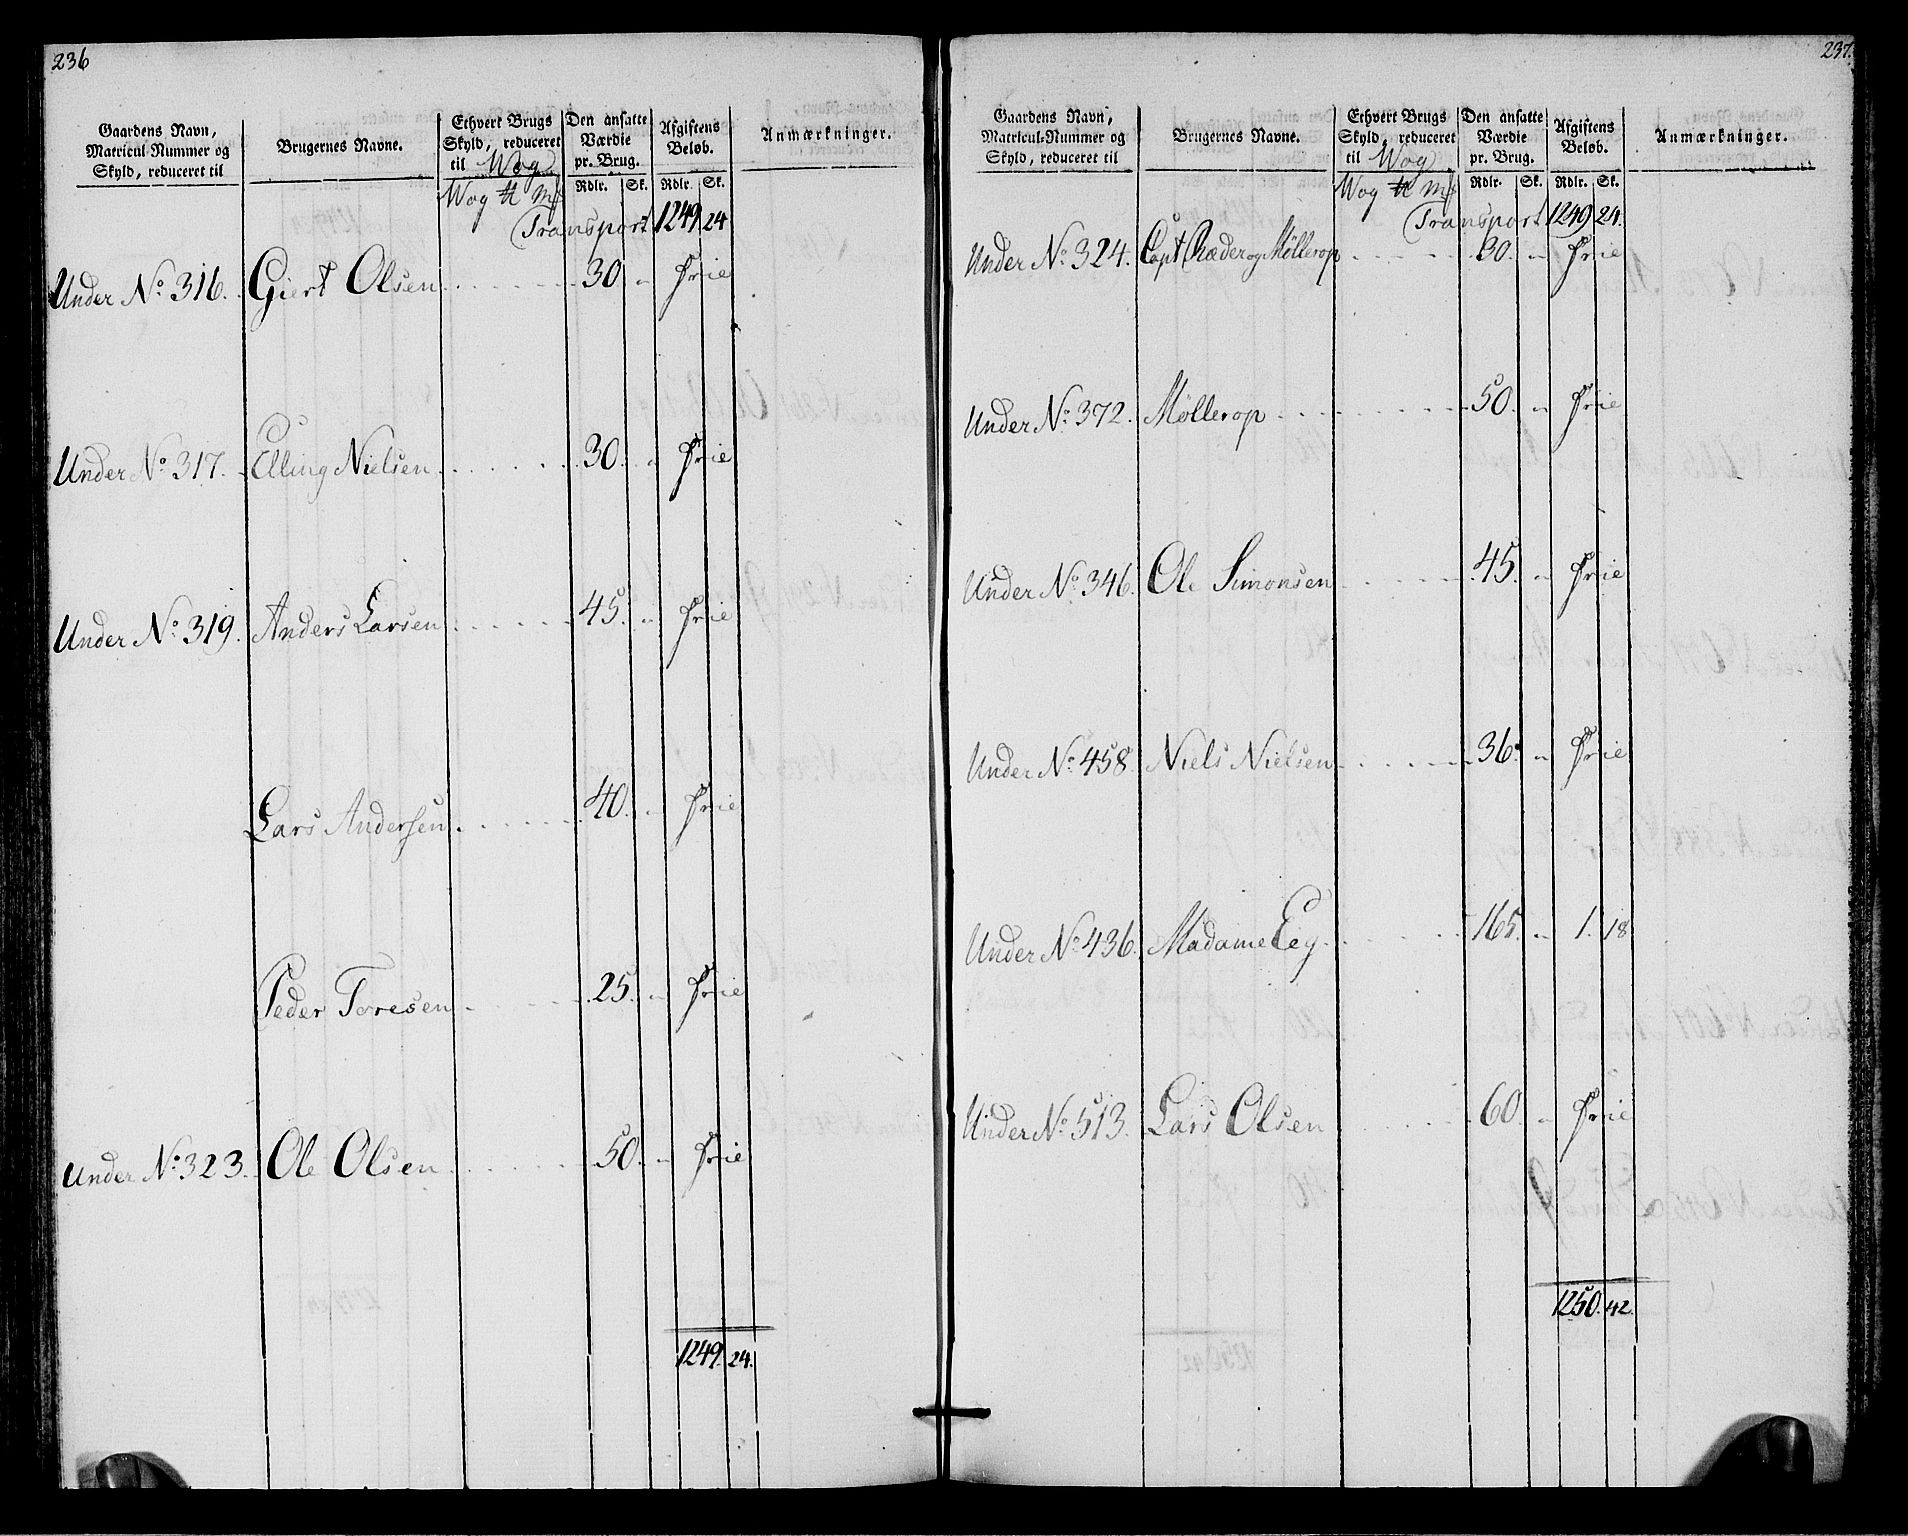 236
Gaardens Navn, Matricul-Nummer og Skyld, reduceret til | Brugernes Navne. | Ethvert Brugs Skyld, reduceret til Wog | Den ansatte Værdie pr. Brug. | Afgiftens Beløb. | Anmærkninger.
Wog ℔ Mf | Rdlr. | Sk. | Rdlr. | Sk.
Transport 1249 24
Under No. 316. Giert Olsen 30 " frie
Under No. 317. Elling Nielsen 30. " frie
Under No. 319. Anders Larsen 45. " frie
Lars Andersen 40. " frie
Peder Toresen 25. " frie
Under No. 323. Ole Olsen 50. " frie
1249. 24.
237.
Gaardens Navn, Matricul-Nummer og Skyld, reduceret til | Brugernes Navne. | Ethvert Brugs Skyld, reduceret til Wog | Den ansatte Værdie pr. Brug. | Afgiftens Beløb. | Anmærkninger.
Wog ℔ Mf | Rdlr. | Sk. | Rdlr. | Sk.
Transport 1249 24.
Under No. 324. Capt Ræder og Möllerop 30. " frie
Under No. 372. Möllerop 50. " frie
Under No. 346. Ole Simonsen 45. " frie
Under No. 458. Niels Nielsen 36. " frie
Under No. 436. Madame Eeg 165. " 1. 18
Under No. 513. Lars Olsen 60 " frie
1250. 42.